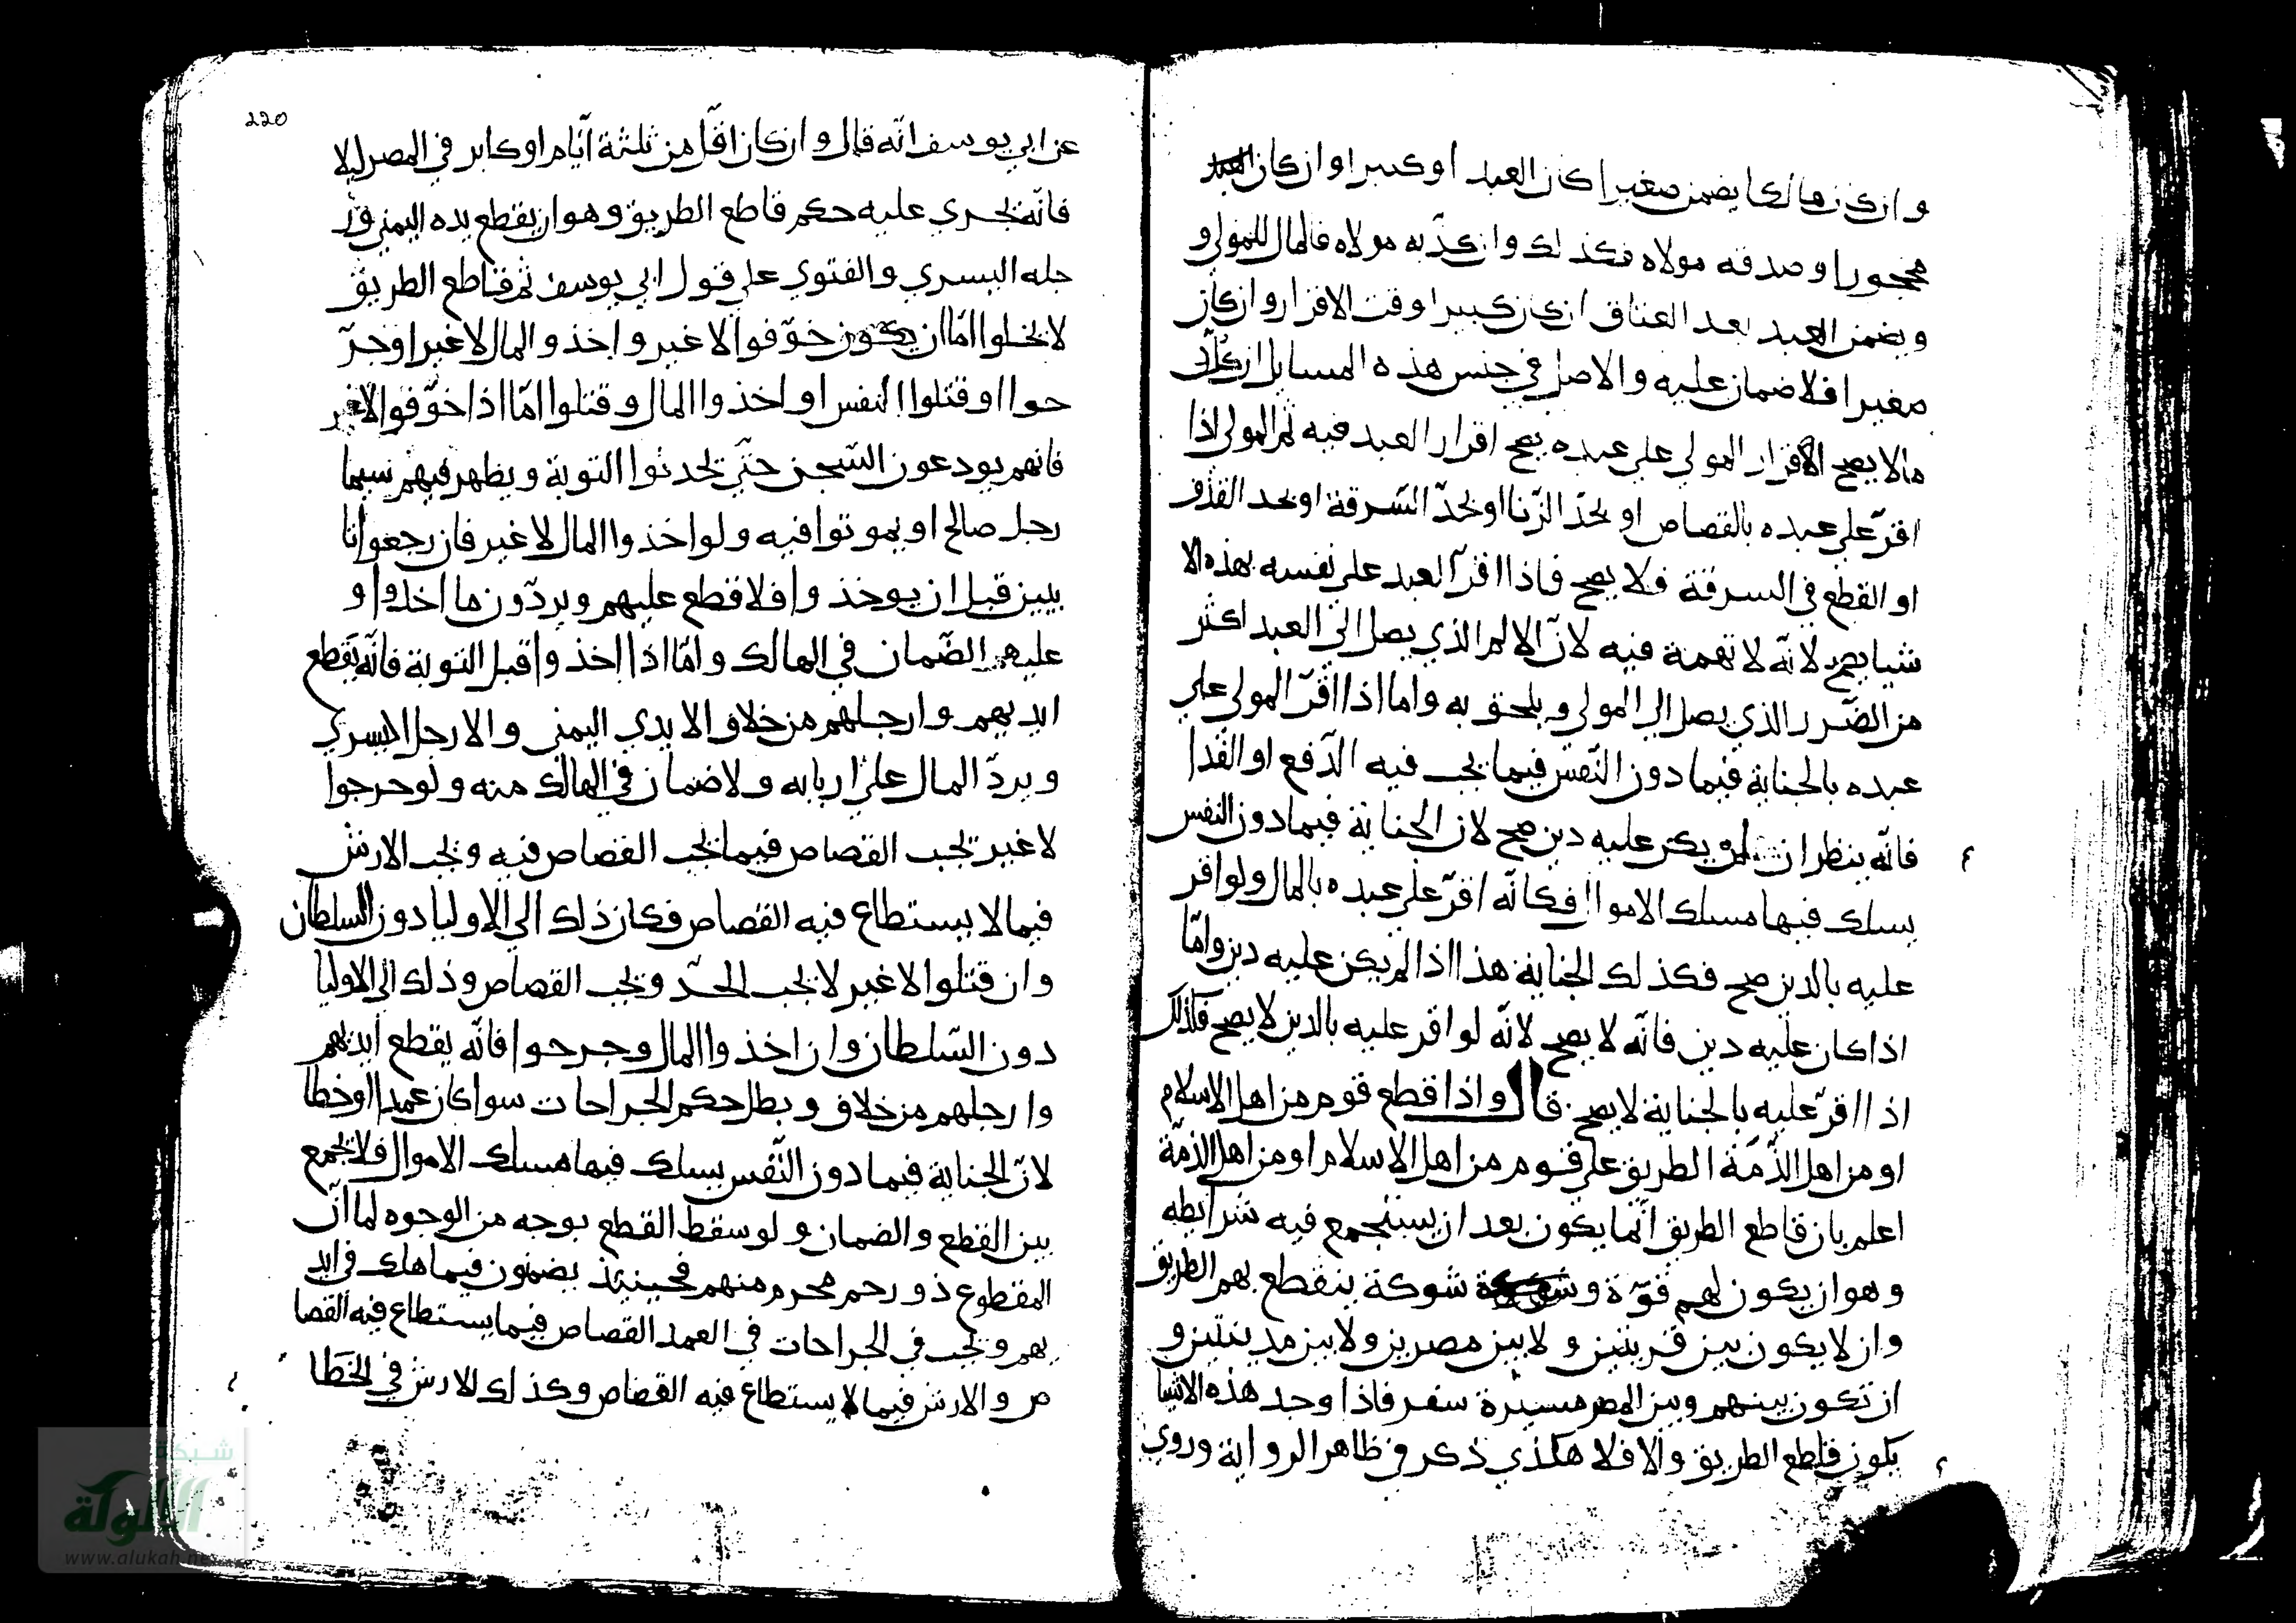 وان كان هالكا يضمن صغيرا كان العبد او كبيرا وان كان العبد
محجورا وصدقه مولاه فكذلك وان كذبه مولاه فالمال للمولي و
ويضمن العبد بعد العتاق ان كان كبيرا وقت الاقرار وان كان
صغيرا فلا ضمان عليه والاصل في جنس هذه المسايل ان كل
مالا يصح اقرار المولي علي عبده يصح اقرار العبد فيه ثم المولي اذا
اقرّ علي عبده بالقصاص او بحدّ الزّنا او بحدّ السّرقة او بحد القذف
او القطع في السرقة فلا يصح فاذا اقرّ العبد علي نفسه بهذه الا
شيا يصح لانّه لا تهمة فيه لانّ الالم الذي يصل الي العبد اكثر
من الضّرر الذي يصل الي المولي ويلحق به واما اذا اقرّ المولي علي
عبده بالجناية فيما دون النّفس فيما يجب فيه الدّفع او الفدا
فانّه ينظر ان لم يكن عليه دين صح لان الجناية فيما دون النفس
يسلك فيها مسلك الاموال فكانّه اقرّ علي عبده بالمال ولو اقر
عليه بالدين صح فكذلك الجناية هذا اذا لم يكن عليه دين وامّا
اذا كان عليه دين فانّه لا يصح لانّه لو اقر عليه بالدين لا يصح فكذلك
اذا اقرّ عليه بالجناية لا يصح قال واذا قطع قوم من اهل الاسلام
او من اهل الذّمّة الطريق علي قوم من اهل الاسلام او من اهل الذمّة
اعلم بان قاطع الطريق انّما يكون بعد ان يستجمع فيه شرائطه
وهو ان يكون لهم قوّة و شوكة ينقطع بهم الطريق
وان لا يكون بين قريتين و لا بين مصرين ولا بين مدينتين و
ان تكون بينهم وبين المصر مسيرة سفر فاذا وجد هذه الاشيا
يكون قاطع الطريق والا فلا هكذي ذكر في ظاهر الرواية وروي
220
عن ابي يوسف انّه قال وان كان اقلّ من ثلثة ايّام او كابر في المصر ليلا
فانّه يجري عليه حكم قاطع الطريق وهو ان يقطع يده اليمني ور
جله اليسري والفتوي علي قول ابي يوسف ثم قاطع الطريق
لا يخلوا امّا ان يكون خوّفوا لا غير واخذوا المال لا غير او جرّ
حوا او قتلوا النفس او اخذوا المال وقتلوا امّا اذا خوّفوا لا غير
فانهم يودعون السّجن حتّي يحدثوا التوبة ويظهر فيهم سيما
رجل صالح او يموتوا فيه ولو اخذوا المال لا غير فان رجعوا تا
يبين قبل ان يوخذوا فلا قطع عليهم ويردّون ما اخذوا و
عليهم الضّمان في الهالك وامّا اذا اخذوا قبل التوبة فانّه يقطع
ايديهم وارجلهم من خلاف الايدي اليمني والارجل اليسري
ويردّ المال علي اربابه ولا ضمان في الهالك منه ولو جرحوا
لا غير تجب القصاص فيما يجب القصاص فيه ويجب الارش
فيما لا يستطاع فيه القصاص فكان ذلك الي الاوليا دون السلطان
وان قتلوا لا غير لا يجب الحدّ ويجب القصاص وذلك الي الاوليا
دون السّلطان وان اخذوا المال وجرحوا فانّه يقطع ايديهم
وارجلهم من خلاف وبطل حكم الجراحات سوا كان عمدا او خطا
لانّ الجناية فيما دون النّفس يسلك فيها مسلك الاموال فلا يجمع
بين القطع والضمان ولو سقط القطع بوجه من الوجوه لما انّ
المقطوع ذو رحم محرم منهم فحينئذ يضمنون فيما هلك في ايد
يهم ويجب في الجراحات في العمد القصاص فيما يستطاع فيه القصا
ص والارش فيما لا يستطاع فيه القصاص وكذلك الارش في الخطا
شبكة
الألوكة
www.alukah.net